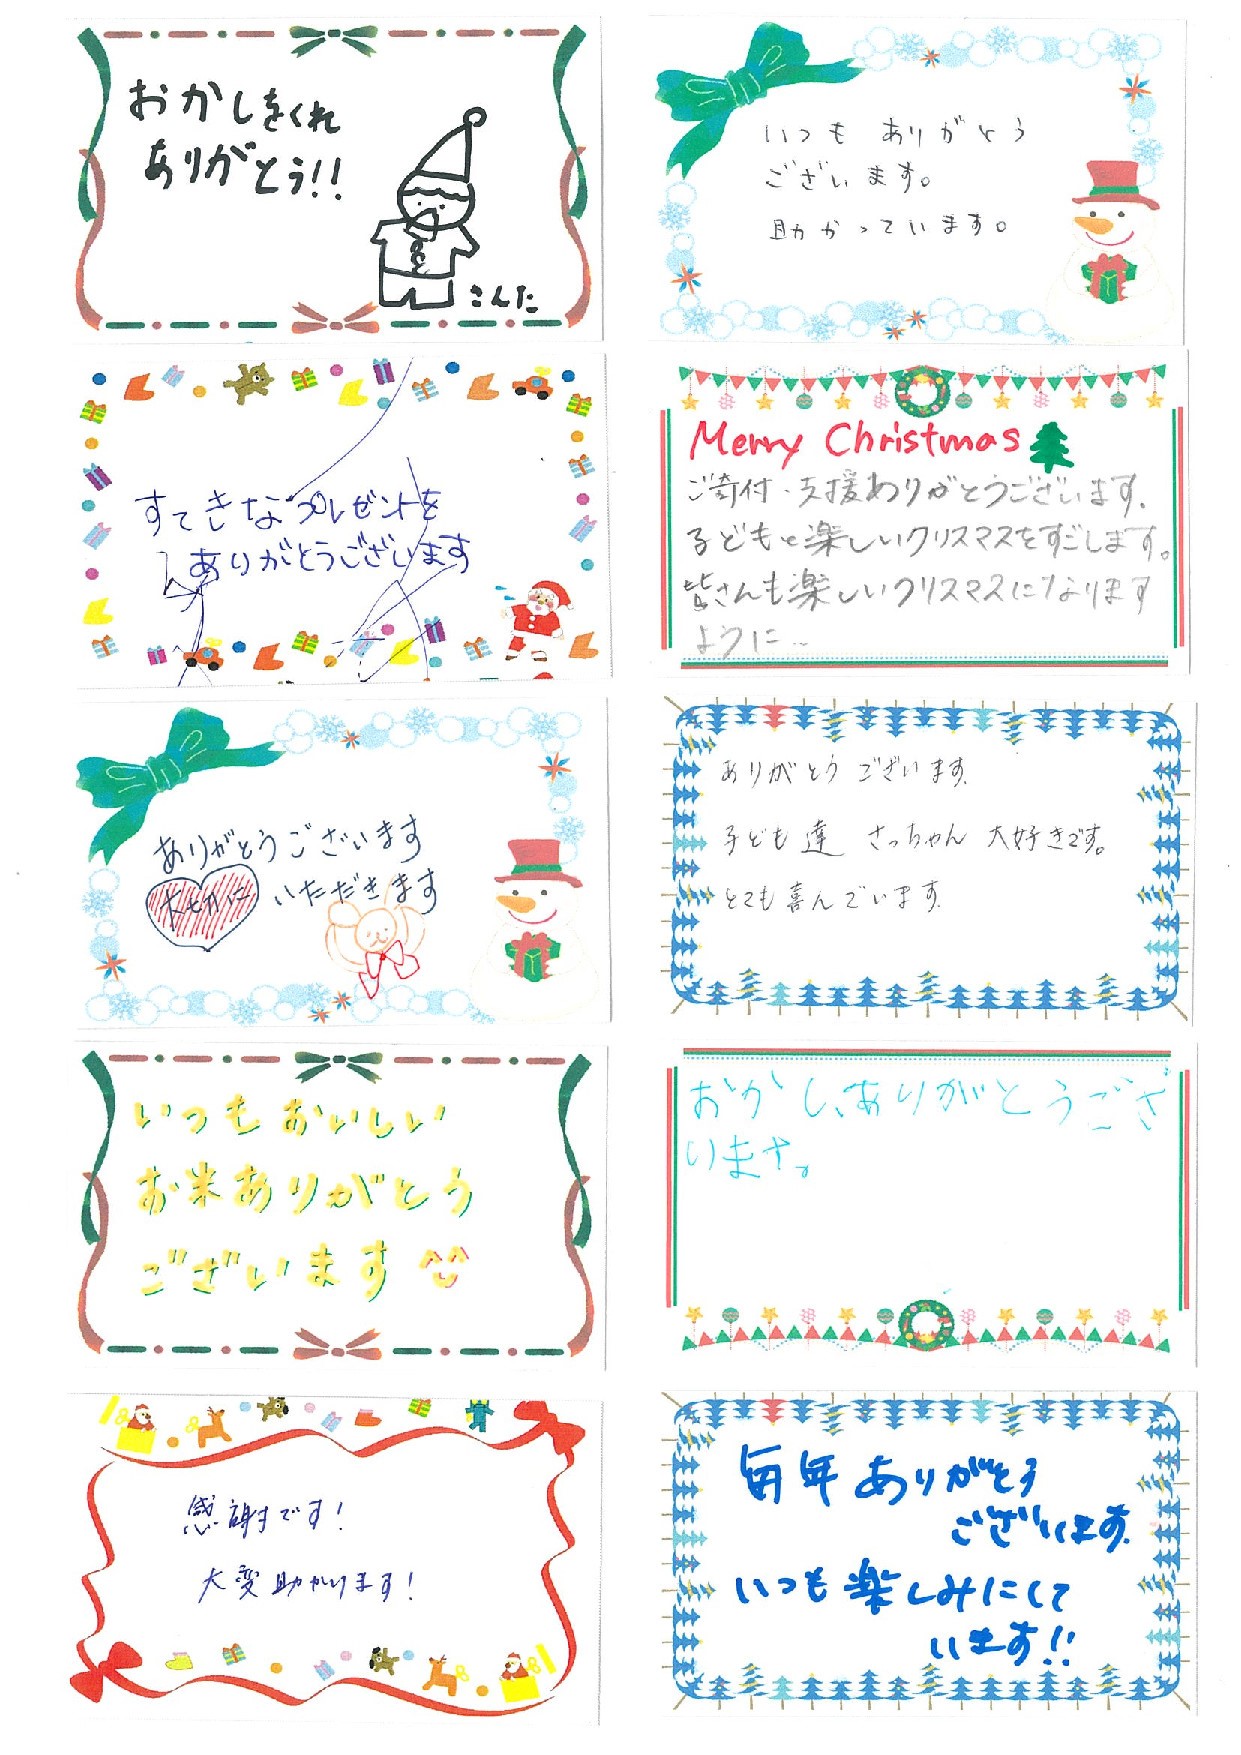 おかしをくれ
ありがとう!!
こんた
いつも ありがとう
ございます。
助かっています。
すてきなプレゼントを
ありがとうございます
Merry Christmas
ご寄付・支援ありがとうございます.
子どもと楽しいクリスマスをすごします。
皆さんも楽しいクリスマスになります
ように…
ありがとうございます
大切に いただきます
ありがとう ございます.
子ども達 さっちゃん 大好きです。
とても喜んでいます.
いつもおいしい
お米ありがとう
ございます
おかし、ありがとうござ
います。
感謝です!
大変助かります!
毎年ありがとう
ございます.
いつも楽しみにして
います!!